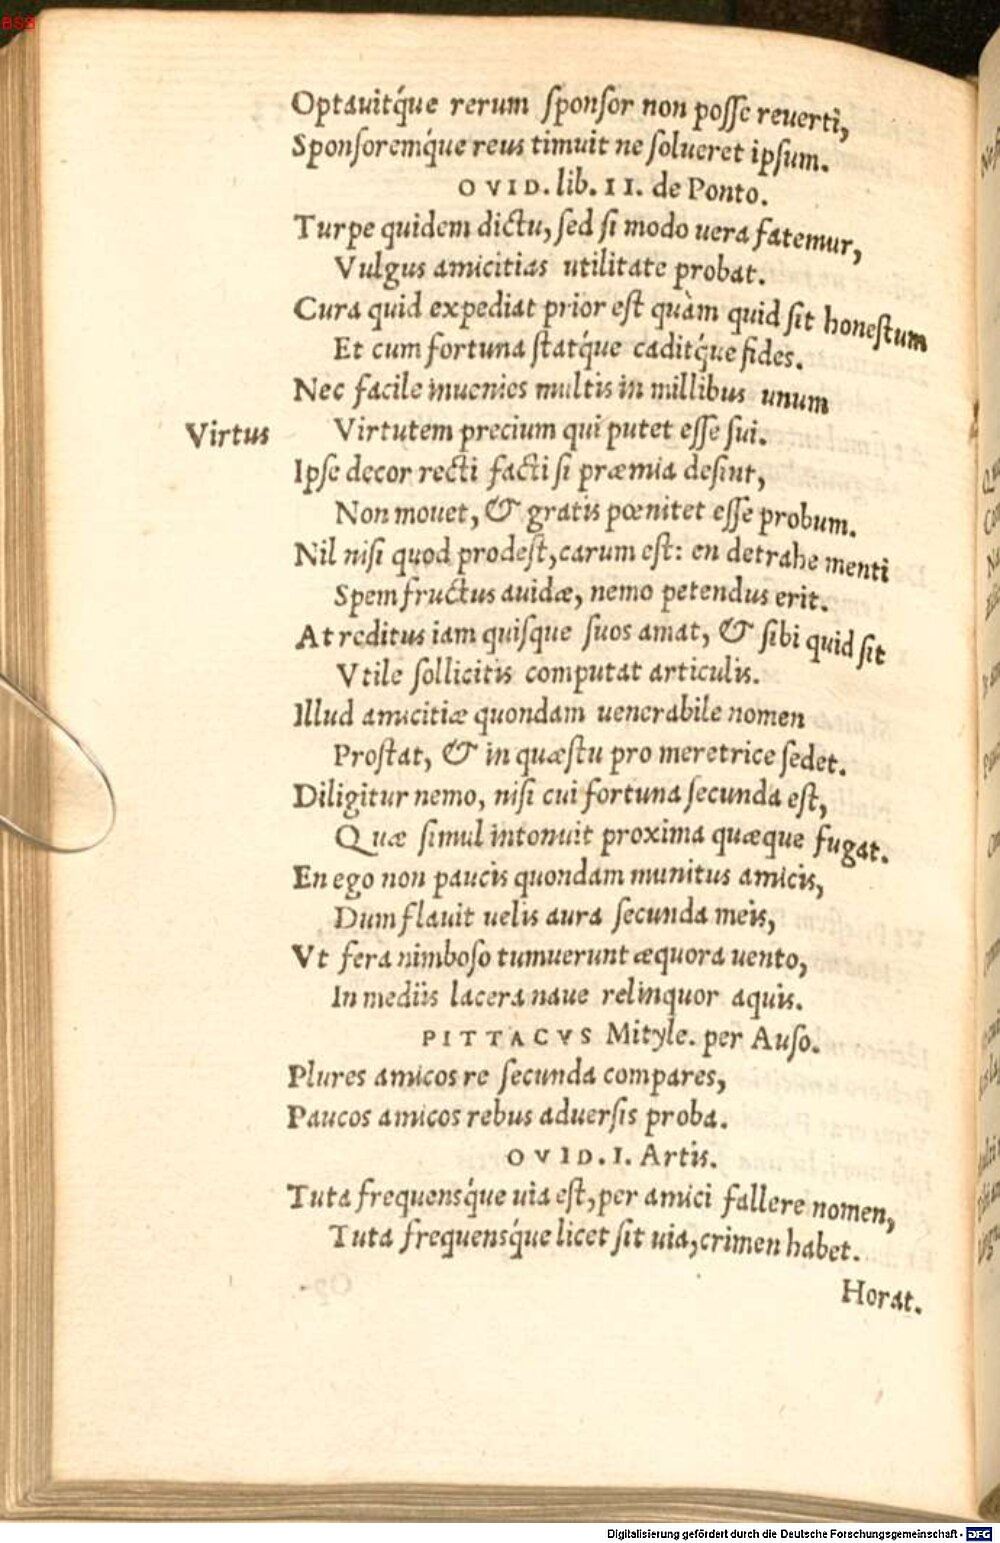 BSB
Optauitq́ue rerum ſponſor non poſſe reuerti,
Sponſoremq́ue reus timuit ne ſolueret ipſum.
OVID. lib. II. de Ponto.
Turpe quidem dictu, ſed ſi modo uera fatemur,
Vulgus amicitias utilitate probat.
Cura quid expediat prior eſt quàm quid ſit honeſtum
Et cum fortuna ſtatq́ue caditq́ue fides.
Nec facile inuenies multis in millibus unum
Virtus
Virtutem precium qui putet eſſe ſui.
Ipſe decor recti facti ſi præmia deſint,
Non mouet, & gratis pœnitet eſſe probum.
Nil niſi quod prodeſt, carum eſt: en detrahe menti
Spem fructus auidæ, nemo petendus erit.
At reditus iam quiſque ſuos amat, & ſibi quid ſit
Vtile ſollicitis computat articulis.
Illud amicitiæ quondam uenerabile nomen
Proſtat, & in quæſtu pro meretrice ſedet.
Diligitur nemo, niſi cui fortuna ſecunda eſt,
Quæ ſimul intonuit proxima quæque fugat.
En ego non paucis quondam munitus amicis,
Dum flauit uelis aura ſecunda meis,
Vt fera nimboſo tumuerunt æquora uento,
In mediis lacera naue relinquor aquis.
PITTACVS Mityle. per Auſo.
Plures amicos re ſecunda compares,
Paucos amicos rebus aduerſis proba.
OVID. I. Artis.
Tuta frequensq́ue uia eſt, per amici fallere nomen,
Tuta frequensq́ue licet ſit uia, crimen habet.
Horat.
Digitalisierung gefördert durch die Deutsche Forschungsgemeinschaft - DFG